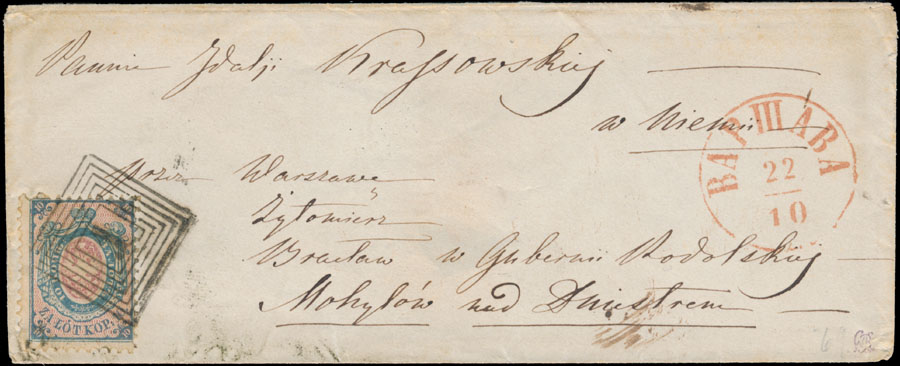 Pannie Idalji Krassowskiej
w Niemii
przez Warszawę
Żytomierz
Bracław w Gubernii Podolskiej
Mohylów nad Dniestrem
ВАРШАВА
22
10
ZA ŁÓT KOP.